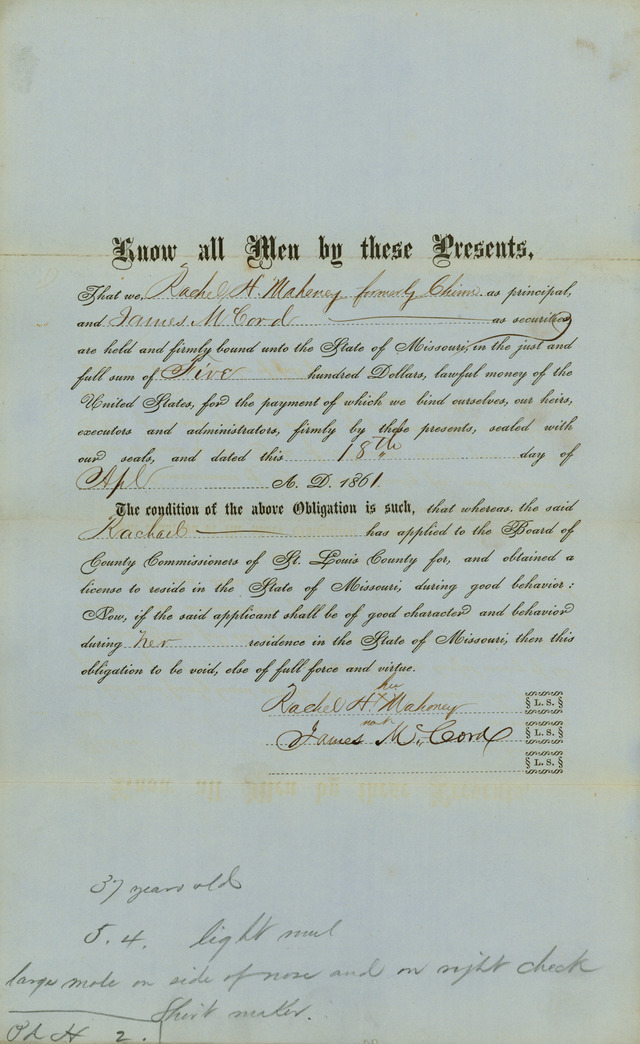 Know all Men by these Presents,
That we, Rachel H. Mahoney formerly Chinn as principal,
and James McCord as securities
are held and firmly bound unto the State of Missouri, in the just and
full sum of Five hundred Dollars, lawful money of the
United States, for the payment of which we bind ourselves, our heirs,
executors and administrators, firmly by these presents, sealed with
our seals, and dated this 18th day of
Apl A. D. 1861.
The condition of the above Obligation is such, that whereas, the said
Rachael has applied to the Board of
County Commissioners of St. Louis County for, and obtained a
license to reside in the State of Missouri, during good behavior:
Now, if the said applicant shall be of good character and behavior
during her residence in the State of Missouri, then this
obligation to be void, else of full force and virtue.
her
Rachel H. X Mahoney § L. S. §
mark
James McCord § L. S. §
§ L. S. §
37 years old
5.4. light mul
large mole on side of nose and on right cheek
Shirt maker.
Pd H 2.